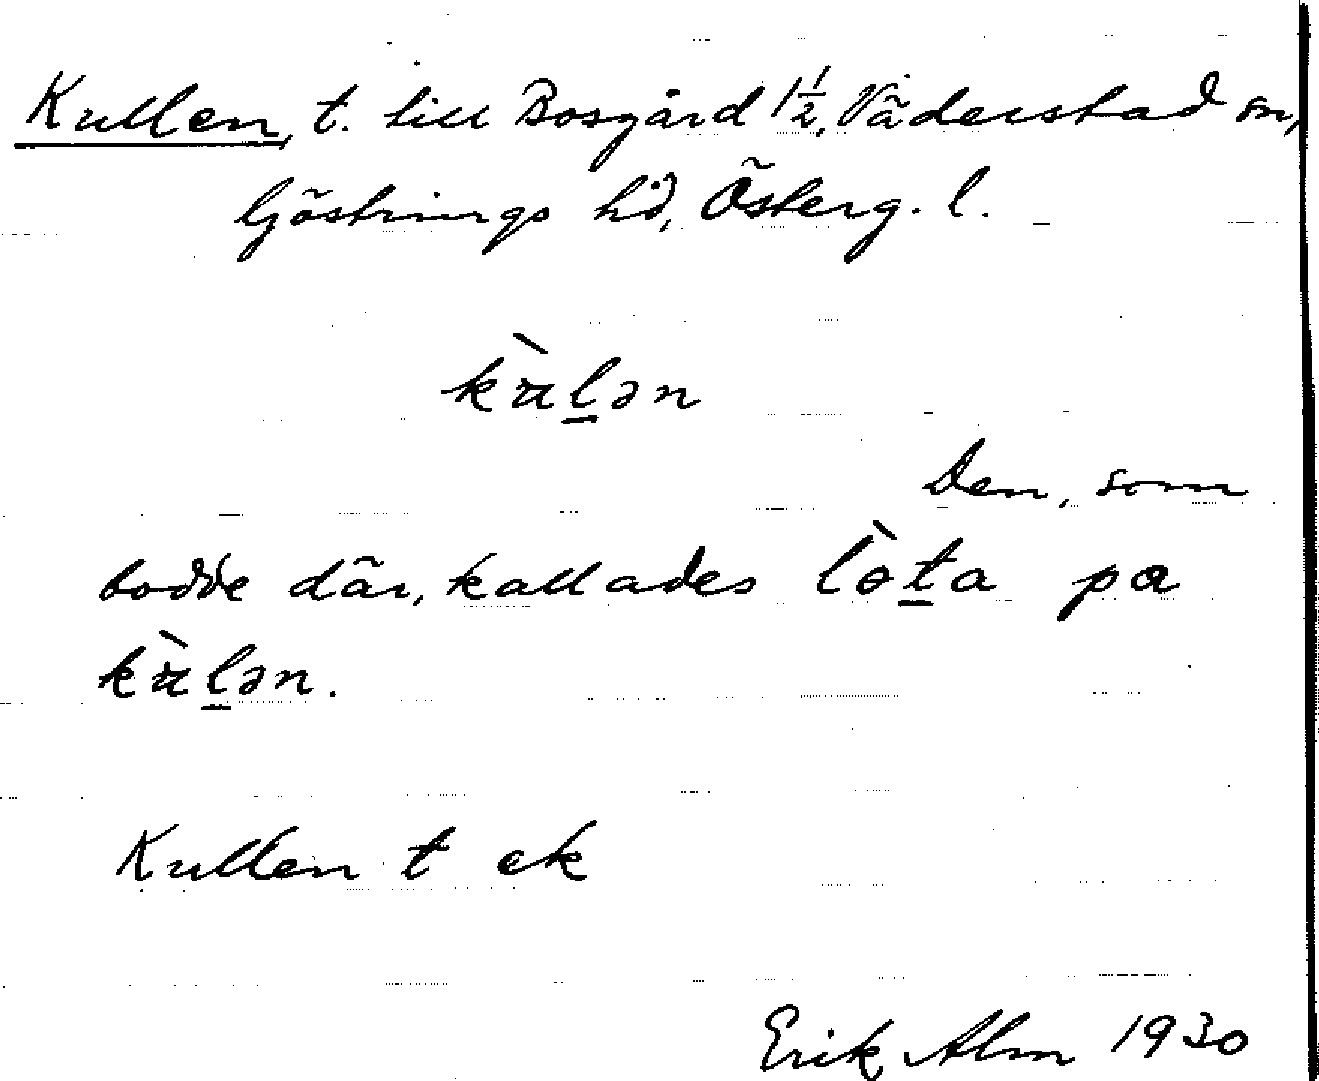 Kullen, t. till Bosgård 1 1/2, Väderstad sn,
Göstrings hd, Österg. l.
kàl̠ən
Den, som
bodde där, kallades lòt̠a pa
kàl̠ən.
Kullen t ek
Erik Alm 1930